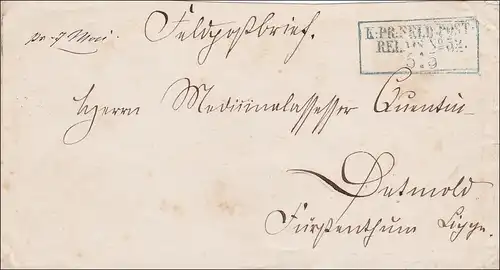 pr. 7 Mai.
Feldpostbrief.
K: PR: FELD-POST-
RELAIS No 52.
5 : 5
Herrn Medicinalassessor Quentin
Detmold
Fürstenthum Lippe.